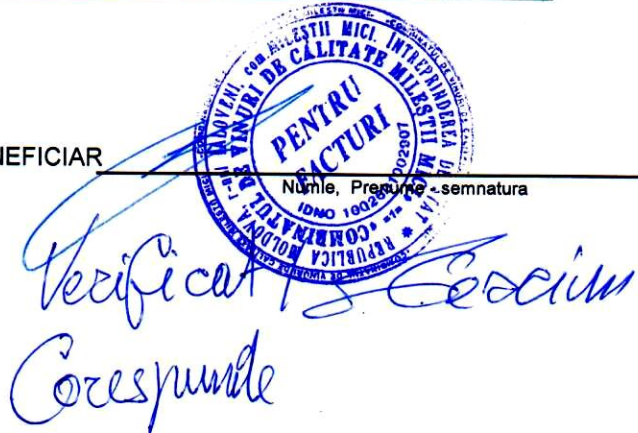 NEFICIAR
Numle, Prenume semnatura
MOLDOVA, r-nul IALOVENI, com. MILEȘTII MICI. ÎNTREPRINDEREA DE STAT * REPUBLICA
COMBINATUL DE VINURI DE CALITATE MILEȘTII MICI
PENTRU
FACTURI
IDNO
Verificat
Corespunde